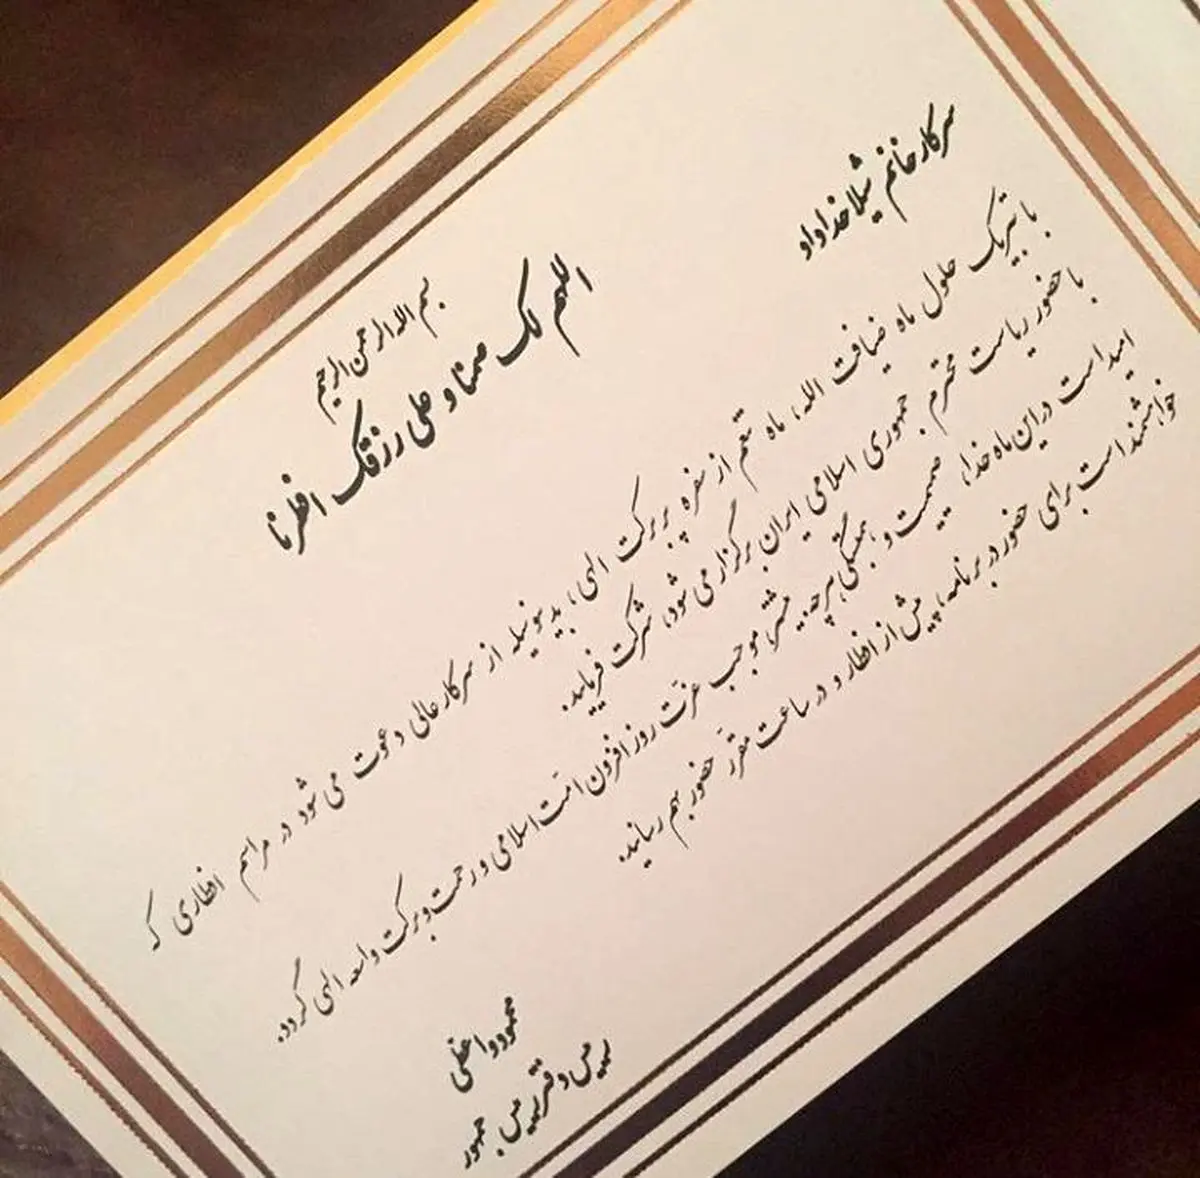 بسم الله الرحمن الرحیم
اللهم لک صمنا و علی رزقک افطرنا
سرکار خانم شیلا خداداد
با تبریک حلول ماه ضیافت الله، ماه تنعم از سفره پر برکت الهی، بدینوسیله از سرکار عالی دعوت می شود در مراسم افطاری که
با حضور ریاست محترم جمهوری اسلامی ایران برگزار می شود، شرکت فرمایید.
امید است در این ماه خدا، صمیمیت و همبستگی هرچه بیشتر، موجب عزت روز افزون امت اسلامی و رحمت و برکت واسعه الهی گردد.
خواهشمند است برای حضور در برنامه، پیش از افطار و در ساعت مقرر حضور بهم رسانید.
محمود واعظی
رییس دفتر رییس جمهور